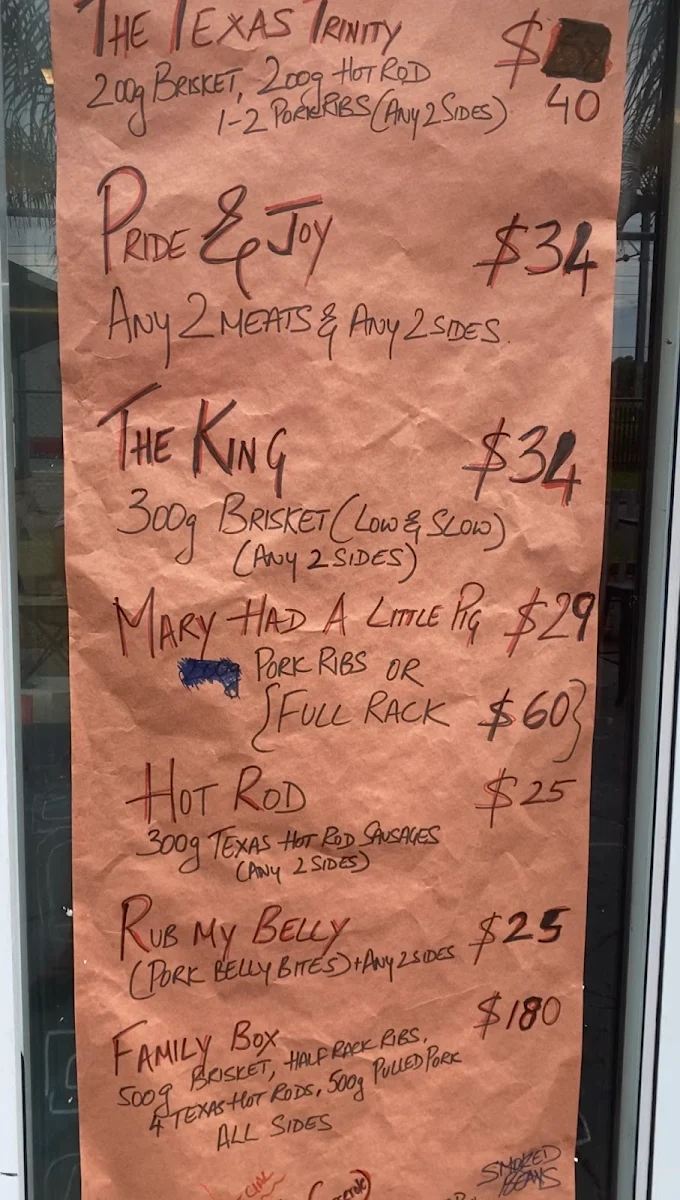 THE TEXAS TRINITY $
200g BRISKET, 200g HOT ROD 40
1-2 PORK RIBS (ANY 2 SIDES)
PRIDE & JOY $34
ANY 2 MEATS & ANY 2 SIDES.
THE KING $34
300g BRISKET (LOW & SLOW)
(ANY 2 SIDES)
MARY HAD A LITTLE PIG $29
PORK RIBS OR
{FULL RACK $60}
HOT ROD $25
300g TEXAS HOT ROD SAUSAGES
(ANY 2 SIDES)
RUB MY BELLY $25
(PORK BELLY BITES) + ANY 2 SIDES
FAMILY BOX $180
500g BRISKET, HALF RACK RIBS,
4 TEXAS HOT RODS, 500g PULLED PORK
ALL SIDES
SMOKED
BEANS